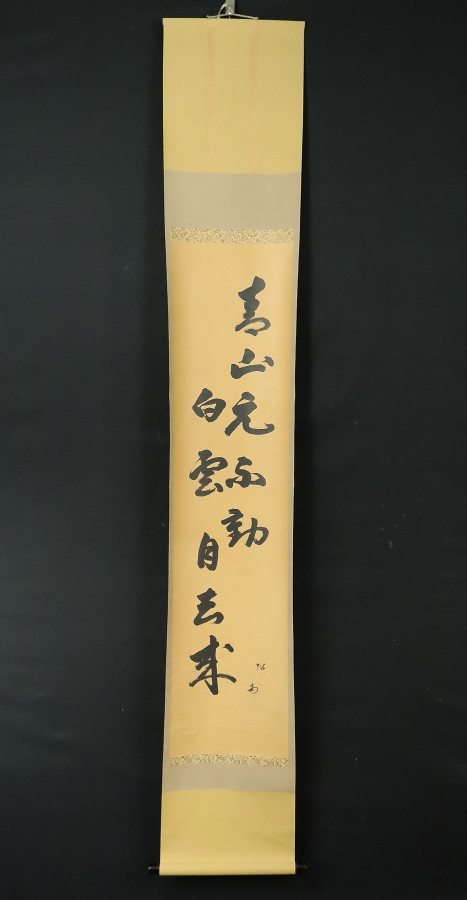 青山元不動
白雲自去來